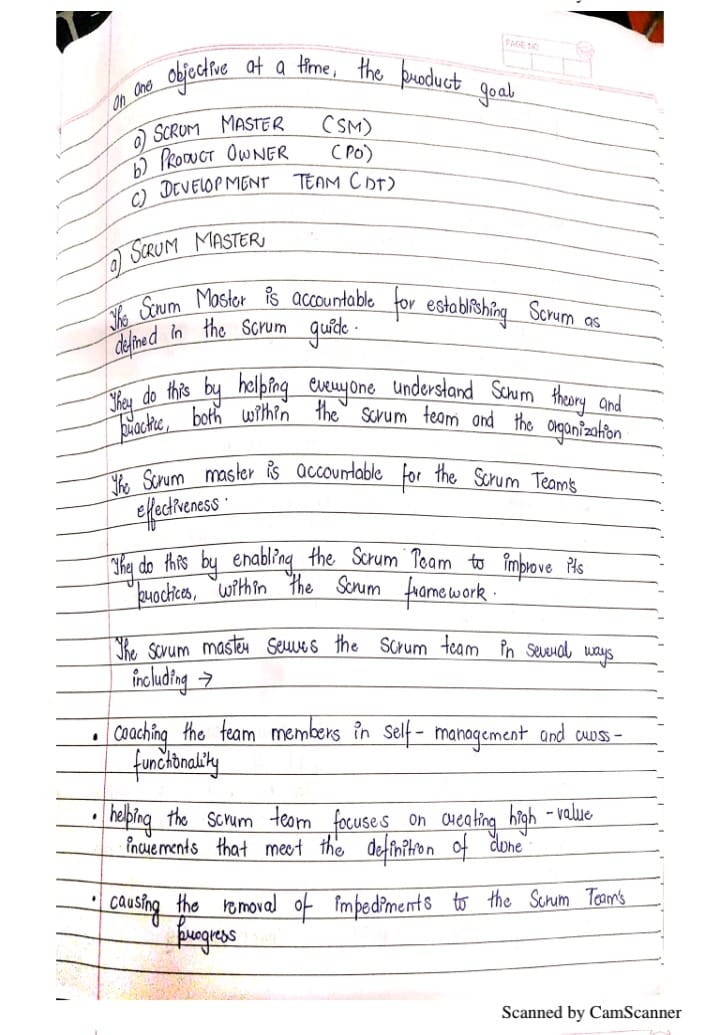 PAGE NO
on one objective at a time, the product goal
a) SCRUM MASTER (SM)
b) PRODUCT OWNER (PO)
c) DEVELOPMENT TEAM (DT)
a) SCRUM MASTER
The Scrum Master is accountable for establishing Scrum as
defined in the scrum guide.
They do this by helping everyone understand Scrum theory and
practice, both within the scrum team and the organization
The Scrum master is accountable for the Scrum Team's
effectiveness.
They do this by enabling the Scrum Team to improve its
practices, within the Scrum framework.
The scrum master serves the scrum team in several ways
including →
• coaching the team members in self-management and cross-
functionality
• helping the scrum team focuses on creating high-value
increments that meet the definition of done
• causing the removal of impediments to the Scrum Team's
progress
Scanned by CamScanner